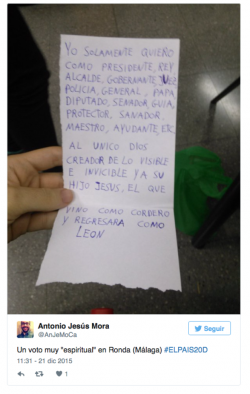 YO SOLAMENTE QUIERO
COMO PRESIDENTE, REY
ALCALDE, GOBERNANTE, JUEZ
POLICIA, GENERAL, PAPA
DIPUTADO, SENADOR, GUIA,
PROTECTOR, SANADOR,
MAESTRO, AYUDANTE, ETC
AL UNICO DIOS
CREADOR DE LO VISIBLE
E INVICIBLE Y A SU
HIJO JESUS, EL QUE
VINO COMO CORDERO
Y REGRESARA COMO
LEON
Antonio Jesús Mora
@AnJeMoCa
Seguir
Un voto muy "espiritual" en Ronda (Málaga) #ELPAIS20D
11:31 - 21 dic 2015
1